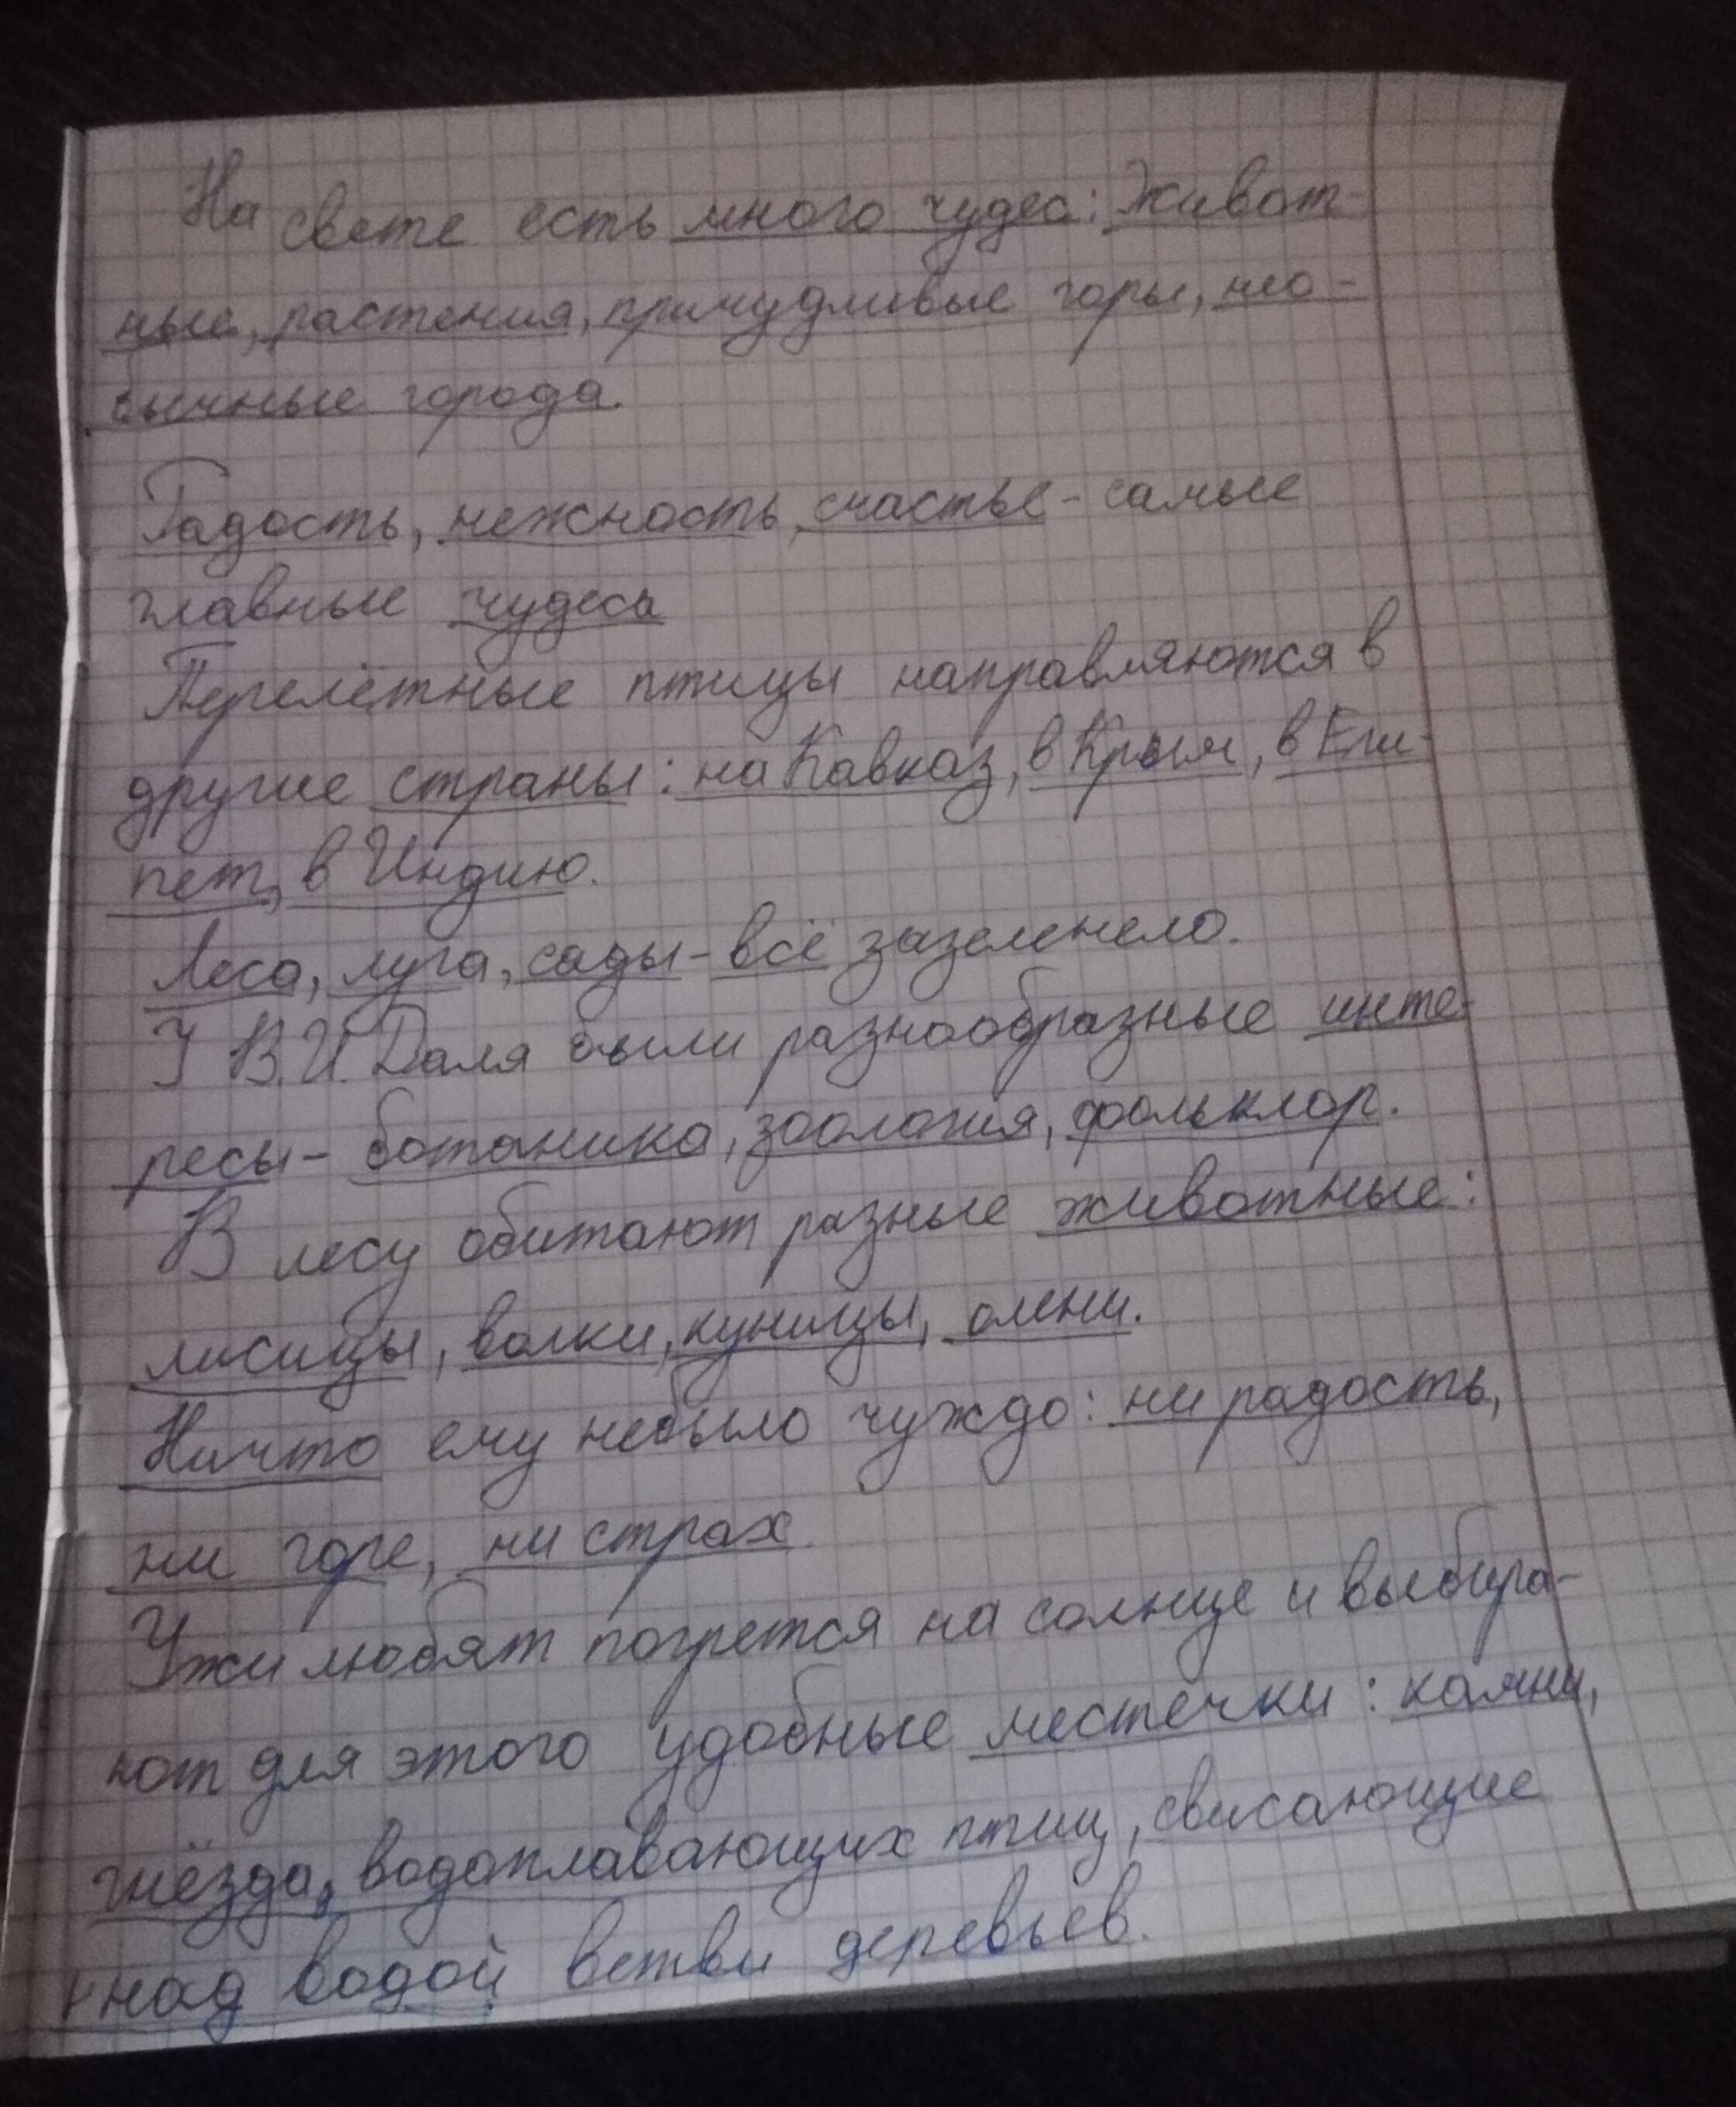 На свете есть много чудес: Живот-
ные, растения, причудливые горы, нео-
бычные города.
Радость, нежность, счастье - самые
главные чудеса
Перелётные птицы направляются в
другие страны: на Кавказ, в Крым, в Еги-
пет, в Индию.
Леса, луга, сады - всё зазеленело.
У В.И. Даля были разнообразные инте-
ресы - ботаника, зоология, фольклор.
В лесу обитают разные животные:
лисицы, волки, куницы, олени.
Ничто ему небыло чуждо: ни радость,
ни горе, ни страх
Ужи любят погрется на солнце и выбира-
ют для этого удобные местечки: камни,
гнёзда, водоплавающих птиц, свисающие
над водой ветви деревьев.